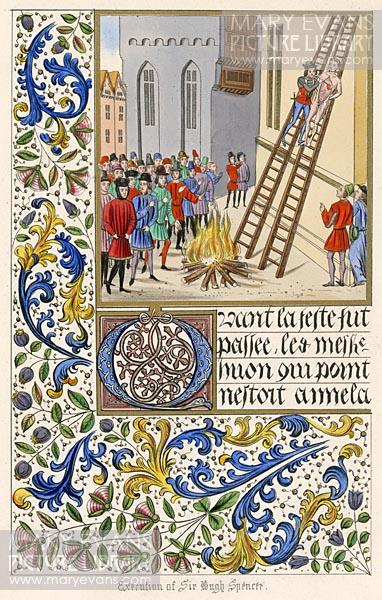 MARY EVANS
PICTURE LIBRARY
Quant la feste fut
passee, les messe
huon qui point
nestoit a mela
MARY EVANS
PICTURE LIBRARY
www.maryevans.com
Execution of Sir Hugh Spencer.